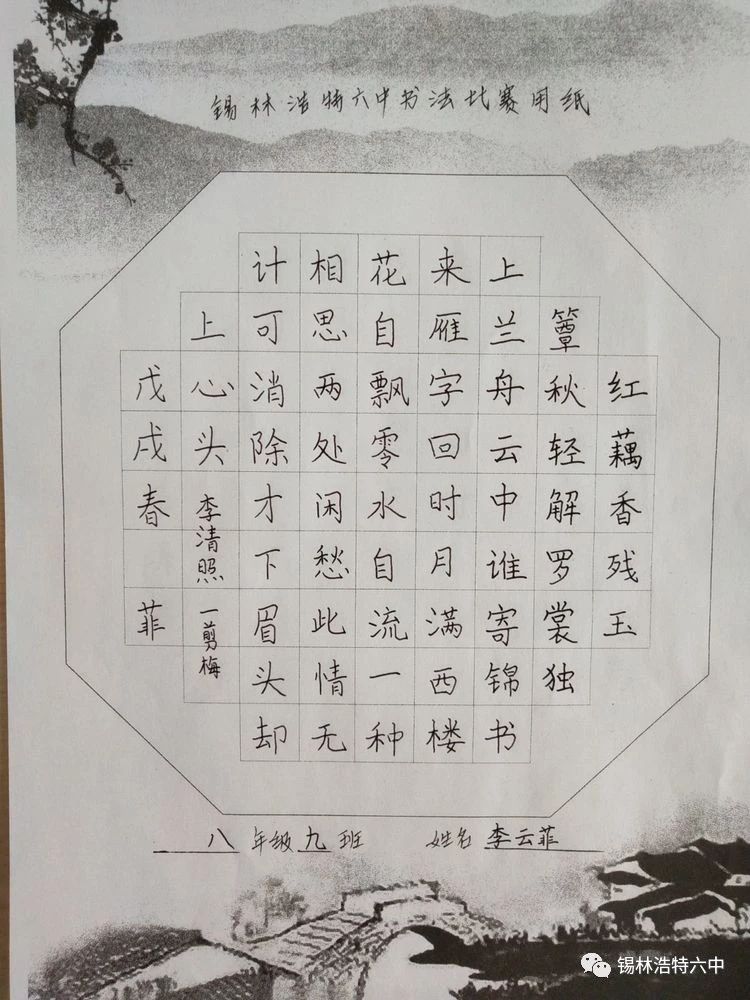 锡林浩特六中书法比赛用纸
红藕香残玉
簟秋轻解罗裳独
上兰舟云中谁寄锦书
来雁字回时月满西楼
花自飘零水自流一种
相思两处闲愁此情无
计可消除才下眉头却
上心头 李清照 一剪梅
戊戌春 菲
八年级九班 姓名李云菲
锡林浩特六中